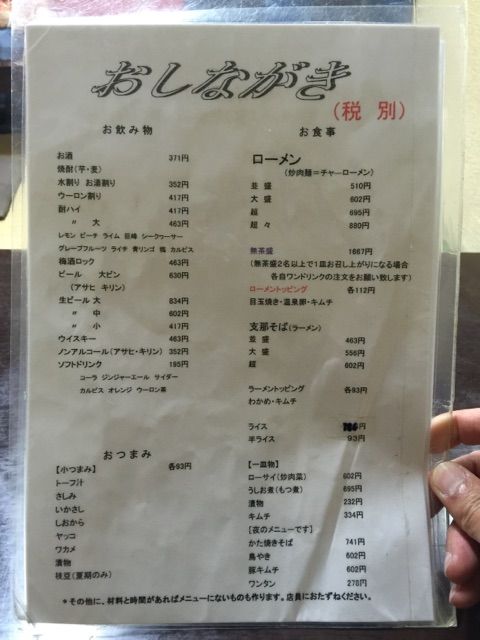 おしながき
（税 別）
お飲み物
お酒 371円
焼酎（芋・麦）
水割り お湯割り 352円
ウーロン割り 417円
酎ハイ 417円
〃 大 463円
レモン ピーチ ライム 巨峰 シークヮーサー
グレープフルーツ ライチ 青リンゴ 桃 カルピス
梅酒ロック 463円
ビール 大ビン 630円
（アサヒ キリン）
生ビール 大 834円
〃 中 602円
〃 小 417円
ウイスキー 463円
ノンアルコール（アサヒ・キリン） 352円
ソフトドリンク 195円
コーラ ジンジャーエール サイダー
カルピス オレンジ ウーロン茶
おつまみ
【小つまみ】 各93円
トーフ汁
さしみ
いかさし
しおから
ヤッコ
ワカメ
漬物
枝豆（夏期のみ）
お食事
ローメン
（炒肉麺＝チャーローメン）
並 盛 510円
大 盛 602円
超 695円
超 々 880円
無茶盛 1667円
（無茶盛2名以上で1皿お召し上がりになる場合
各自ワンドリンクの注文をお願い致します）
ローメントッピング 各112円
目玉焼き・温泉卵・キムチ
支那そば（ラーメン）
並 盛 463円
大 盛 556円
超 602円
ラーメントッピング 各93円
わかめ・キムチ
ライス 円
半ライス 93円
【一皿物】
ローサイ（炒肉菜） 602円
うしお煮（もつ煮） 695円
漬物 232円
キムチ 334円
［夜のメニューです］
かた焼きそば 741円
鳥やき 602円
豚キムチ 602円
ワンタン 278円
＊その他に、材料と時間があればメニューにないものも作ります。店員におたずねください。